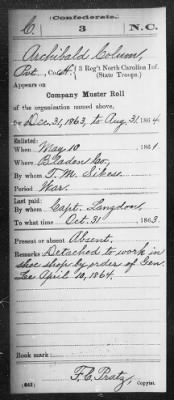 Confederate.
C. 3 N.C.
Archibald Colum,
Pvt., Co. H, 3 Reg't North Carolina Inf.
(State Troops.)
Appears on
Company Muster Roll
of the organization named above,
for Dec. 31, 1863, to Aug. 31, 1864.
Enlisted:
When May 10, 1861
Where Bladen Co,
By whom T. M. Sikes
Period War.
Last paid:
By whom Capt. Langdon,
To what time Oct. 31, 1863.
Present or absent Absent.
Remarks Detached to work in
shoe shop by order of Gen.
Lee April 10, 1864.
Book mark:
(642) F. C. Pratz, Copyist.